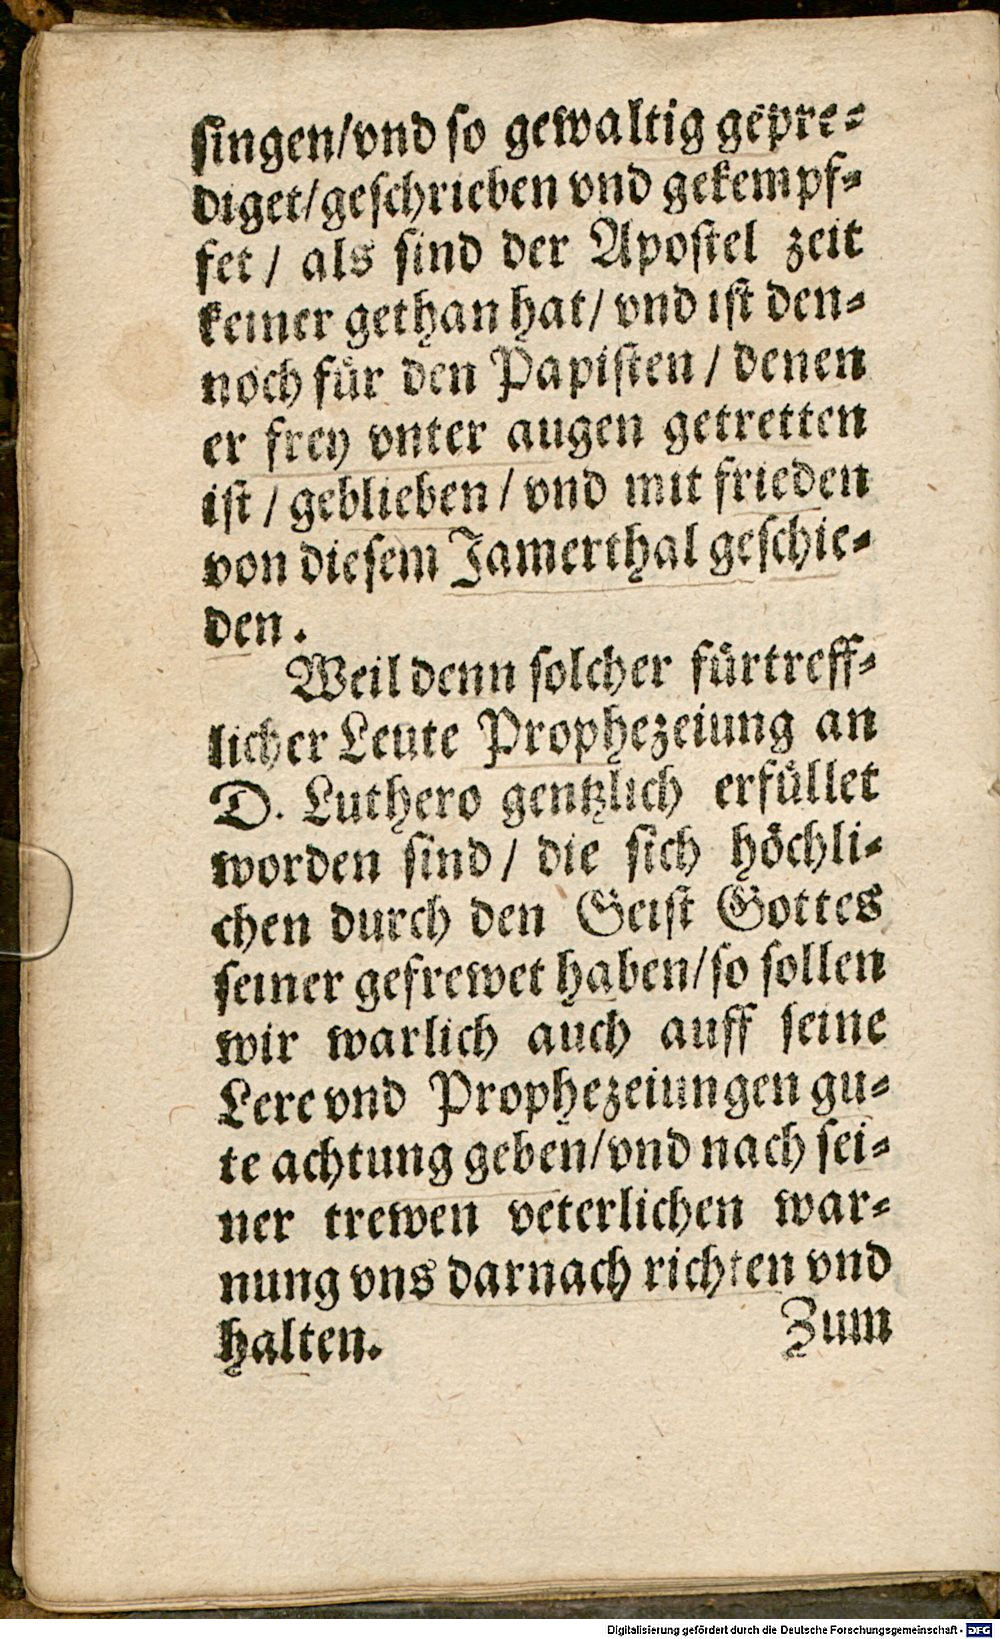 singen/vnd so gewaltig gepre-
diget/geschrieben vnd gekempf-
fet / als sind der Apostel zeit
keiner gethan hat/ vnd ist den-
noch für den Papisten / denen
er frey vnter augen getretten
ist / geblieben / vnd mit frieden
von diesem Jamerthal geschie-
den.
Weil denn solcher fürtreff-
licher Leute Prophezeiung an
D. Luthero gentzlich erfüllet
worden sind / die sich höchli-
chen durch den Geist Gottes
seiner gefrewet haben/so sollen
wir warlich auch auff seine
Lere vnd Prophezeiungen gu-
te achtung geben/vnd nach sei-
ner trewen veterlichen war-
nung vns darnach richten vnd
halten. Zum
Digitalisierung gefördert durch die Deutsche Forschungsgemeinschaft - DFG